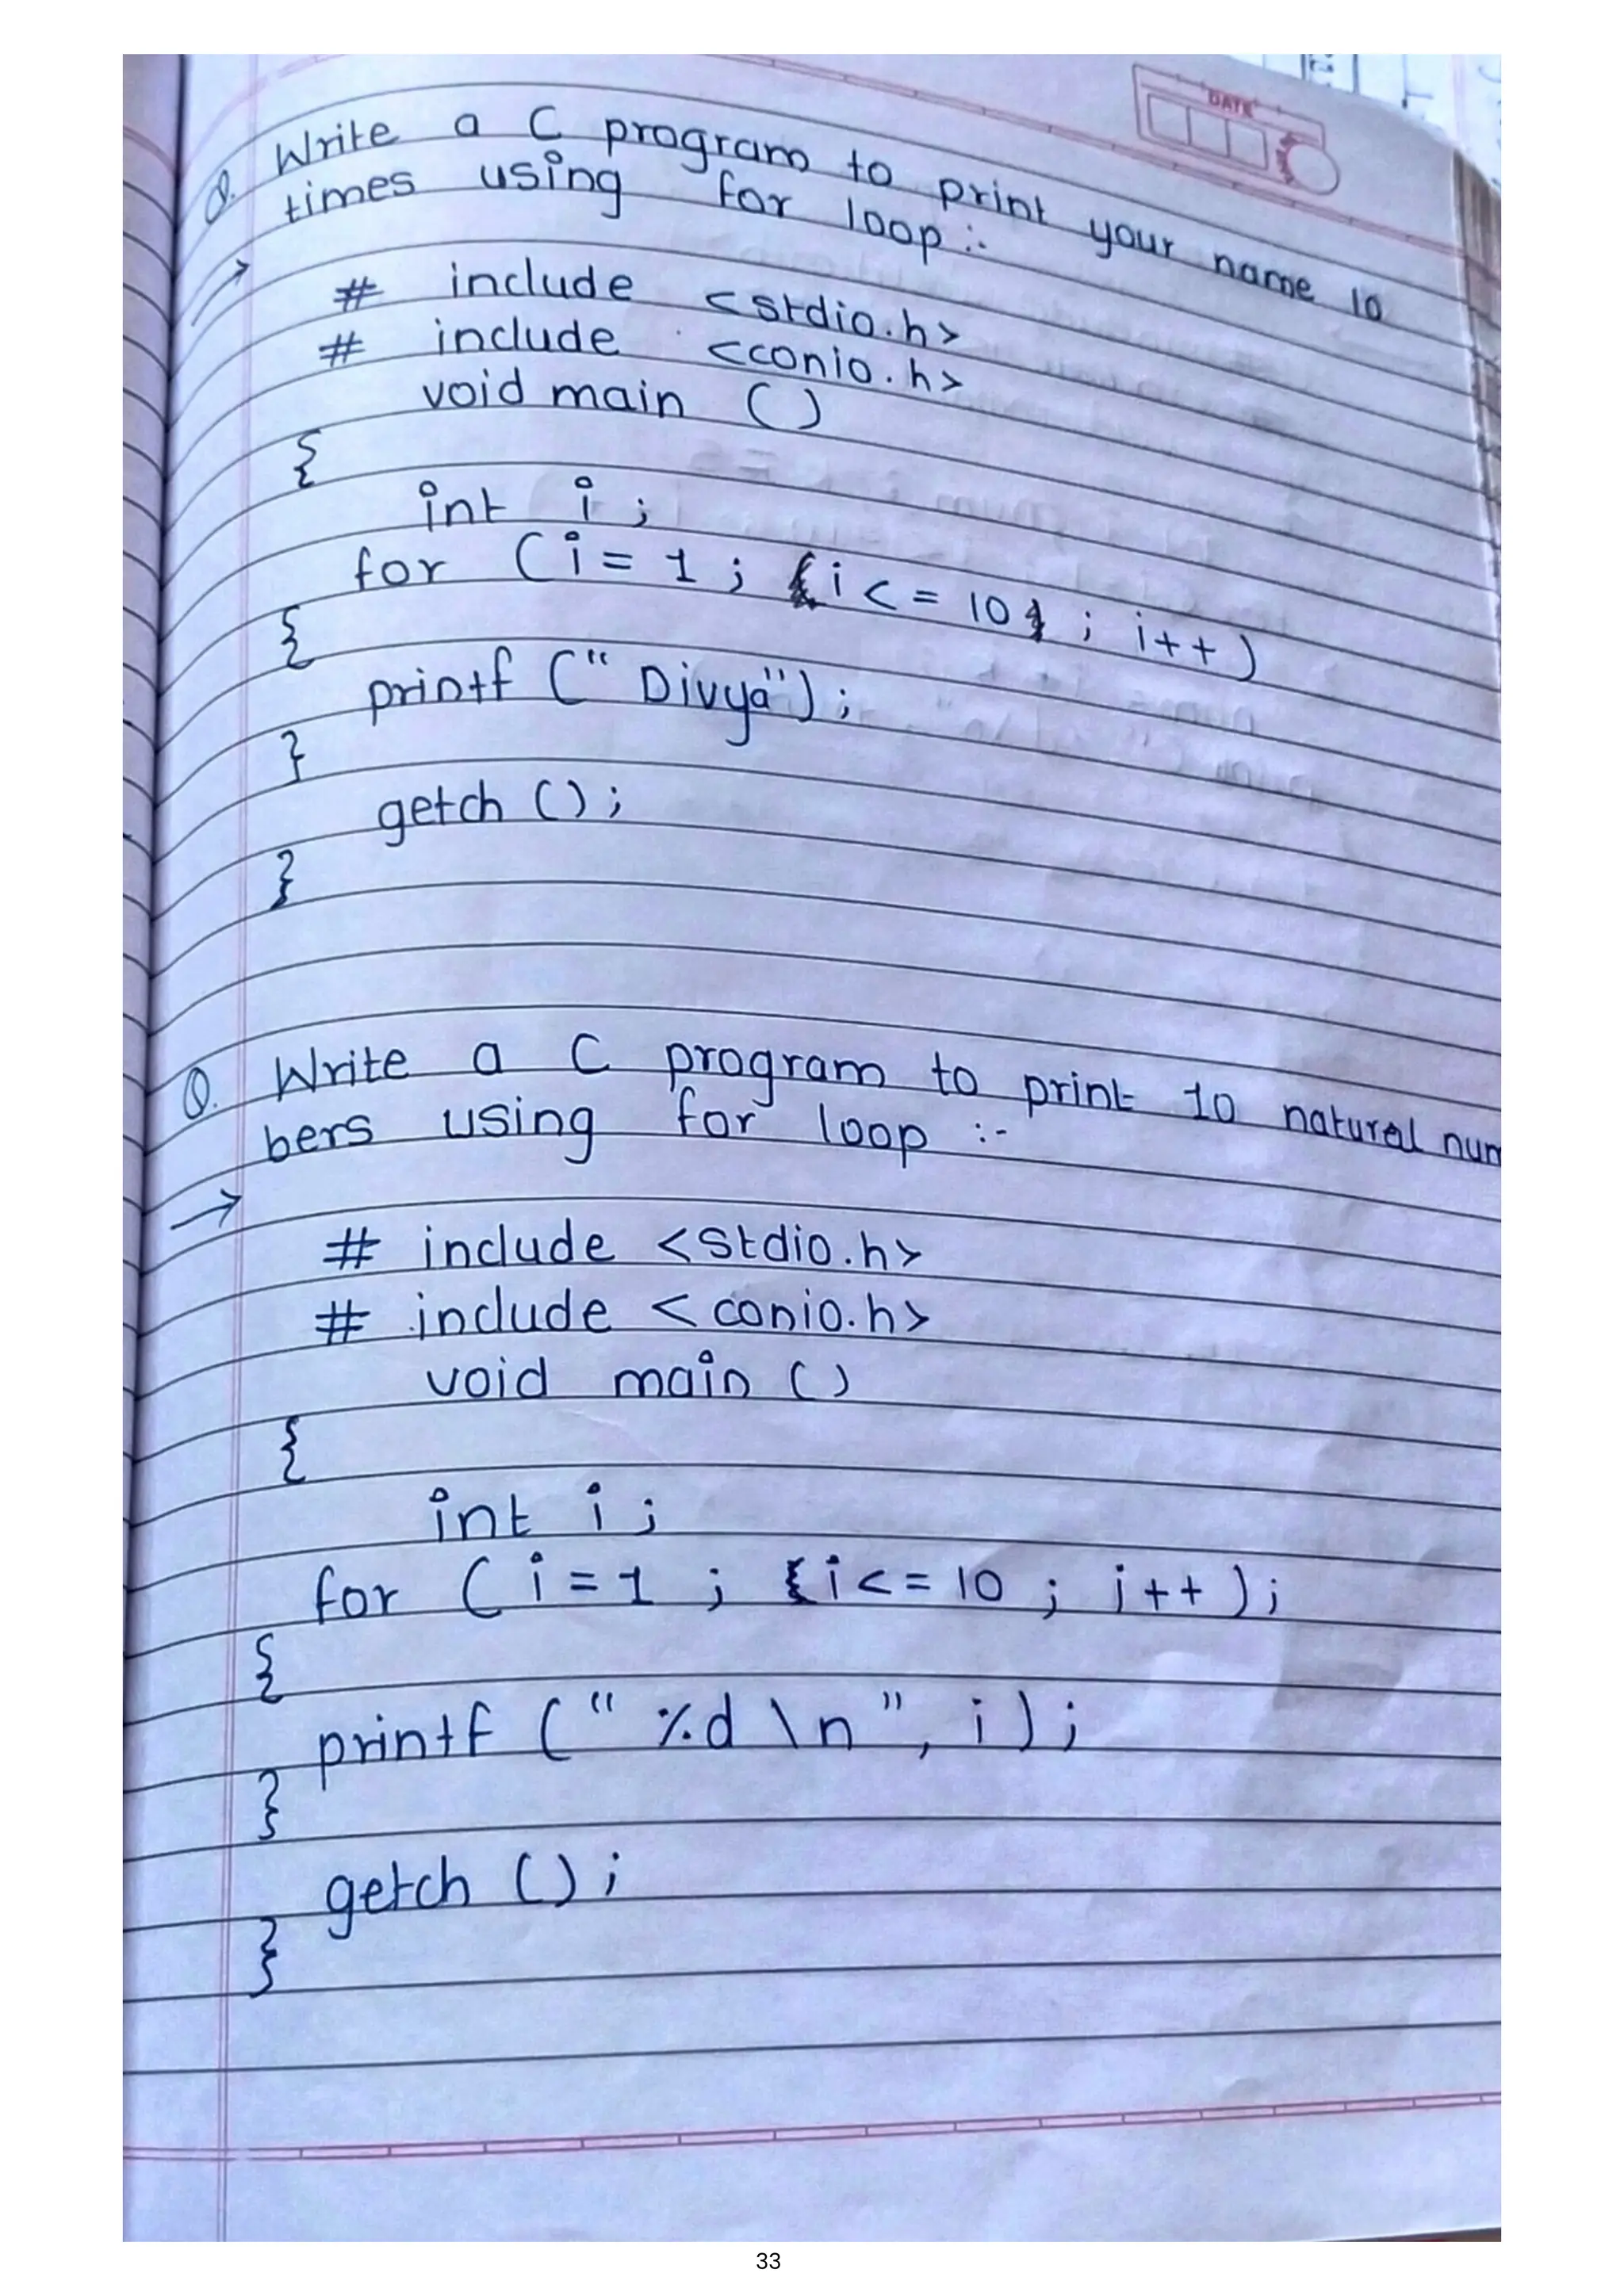 DATE
Q. Write a C program to print your name 10
times using for loop :-
→
# include <stdio.h>
# include <conio.h>
void main ()
{
int i ;
for ( i = 1 ; i <= 10 ; i++ )
{
printf (" Divya") ;
}
getch () ;
}
Q. Write a C program to print 10 natural num
bers using for loop :-
→
# include <stdio.h>
# include < conio.h>
void main ()
{
int i ;
for ( i = 1 ; i <= 10 ; i ++ ) ;
{
printf (" %d \n ", i ) ;
}
getch () ;
}
33